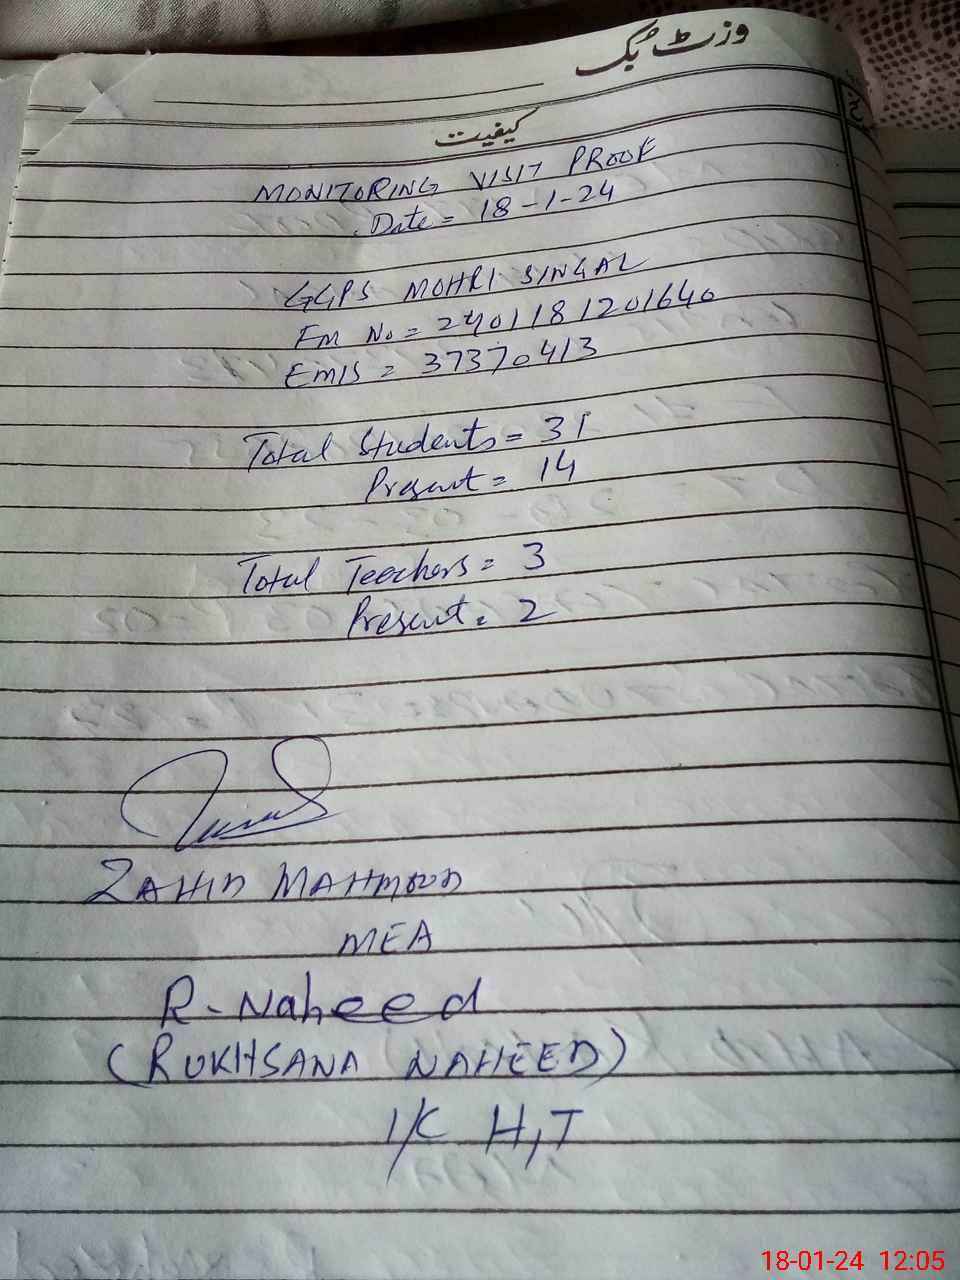 وزٹ بک
کیفیت
MONITORING VISIT PROOF
Date = 18-1-24
GGPS MOHRI SINGAL
Fm No = 2401181201640
EMIS = 37370413
Total Students = 31
Present = 14
Total Teechers = 3
Present = 2
ZAHID MAHMOOD
MEA
R-Naheed
(RUKHSANA NAHEED)
I/C H,T
18-01-24 12:05